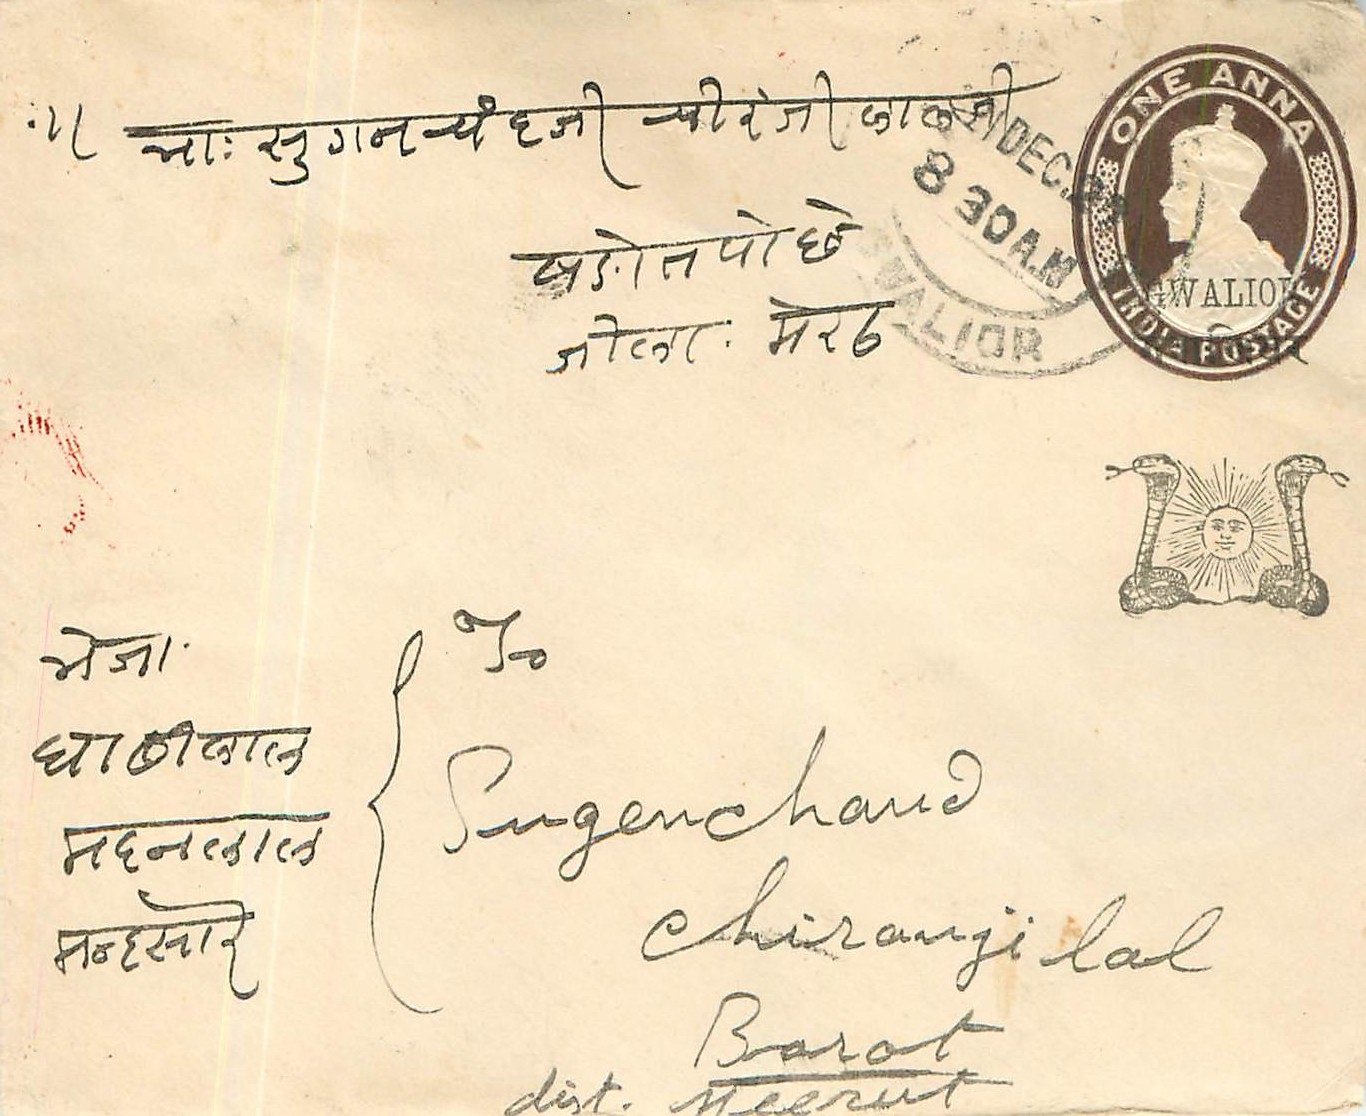 भाः सुगनचंदजी चीरंजीलालजी
बडोत पोछे
जीला. मेरठ
ONE ANNA
INDIA POSTAGE
GWALIOR
DEC.
8 30 A.M
GWALIOR
भेजा.
घासीलाल
मदनलाल
मन्दसोर
To
Sugenchand
Chiranji lal
Barot
dist. Meerut